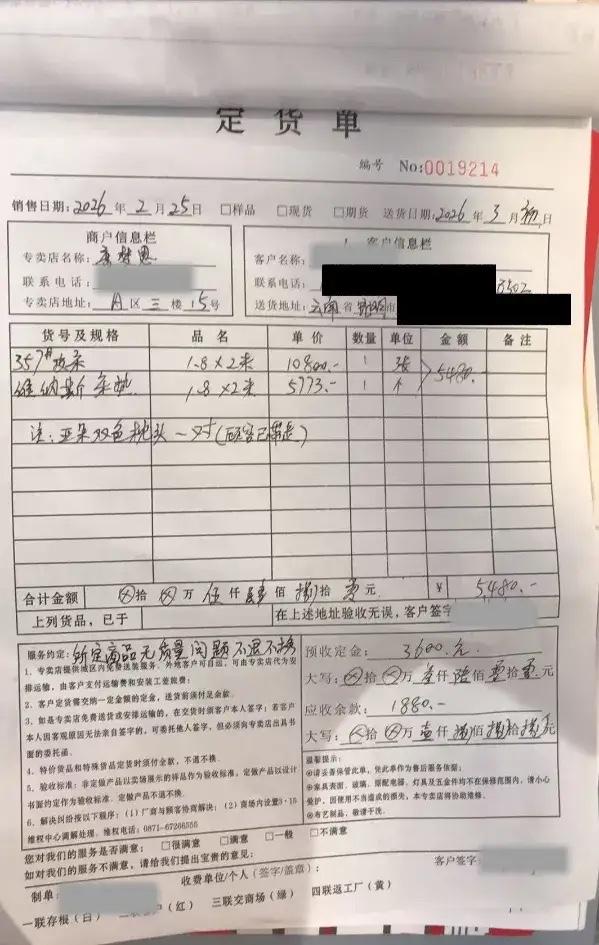 定货单
编号 No:0019214
销售日期:2026年2月25日 □样品 □现货 □期货 送货日期:2026年3月初日
商户信息栏
专卖店名称:
联系电话:
专卖店地址:A区三楼15号
客户信息栏
客户名称:
联系电话:
送货地址:云南省昆明市
货号及规格 品名 单价 数量 单位 金额 备注
357# 1.8×2米 10800.- 1 张 5480.-
维纳斯床垫 1.8×2米 5773.- 1 个
注:亚朵双色枕头一对(顾客已带走)
合计金额 ⊗拾⊗万伍仟肆佰捌拾零元 ¥ 5480.-
上列货品,已于 在上述地址验收无误,客户签字
服务约定:所定商品无质量问题不退不换
1、专卖店提供城区内免费送装服务。外地客户可自运,可由专卖店代为安
排运输,由客户支付运输费和安装工差旅费;
2、客户定货需交纳一定金额的定金,送货前须付足余款。
3、如是专卖店免费送货或安排运输的,在交货时须客户本人签字;若客户
本人因客观原因无法亲自签字的,可委托他人签字,但必须向专卖店出具书
面的委托函。
4、特价货品和特殊货品定货时须付全款,不退不换。
5、验收标准:非定做产品以卖场展示的样品作为验收标准,定做产品以设计
书面约定作为验收标准。定做产品不退换。
6、解决纠纷按以下顺序:(1)厂商与顾客协商解决;(2)商场内设置3·15
维权中心调解处理。维权电话:0871-67266555
您对我们的服务是否满意:□很满意 □满意 □一般 □不满意
如对我们的服务不满意,请给我们提出宝贵的意见:
预收定金:3600.元
大写:⊗拾⊗万叁仟陆佰零拾零元
应收余款:1880.-
大写:⊗拾⊗万壹仟捌佰捌拾元
温馨提示:
⊙请妥善保管此单,凭此单作为售后服务依据;
⊙家具表面、玻璃、搭配电器、灯具及五金件均不在保修范围内,请小心
爱护,因使用不当造成的损失,本专卖店将协助维修。
⊙布艺制品,敬请干洗。
客户签字:
制单: 收费单位/个人(签字/盖章):
一联存根(白) (红) 三联交商场(绿) 四联返工厂(黄)